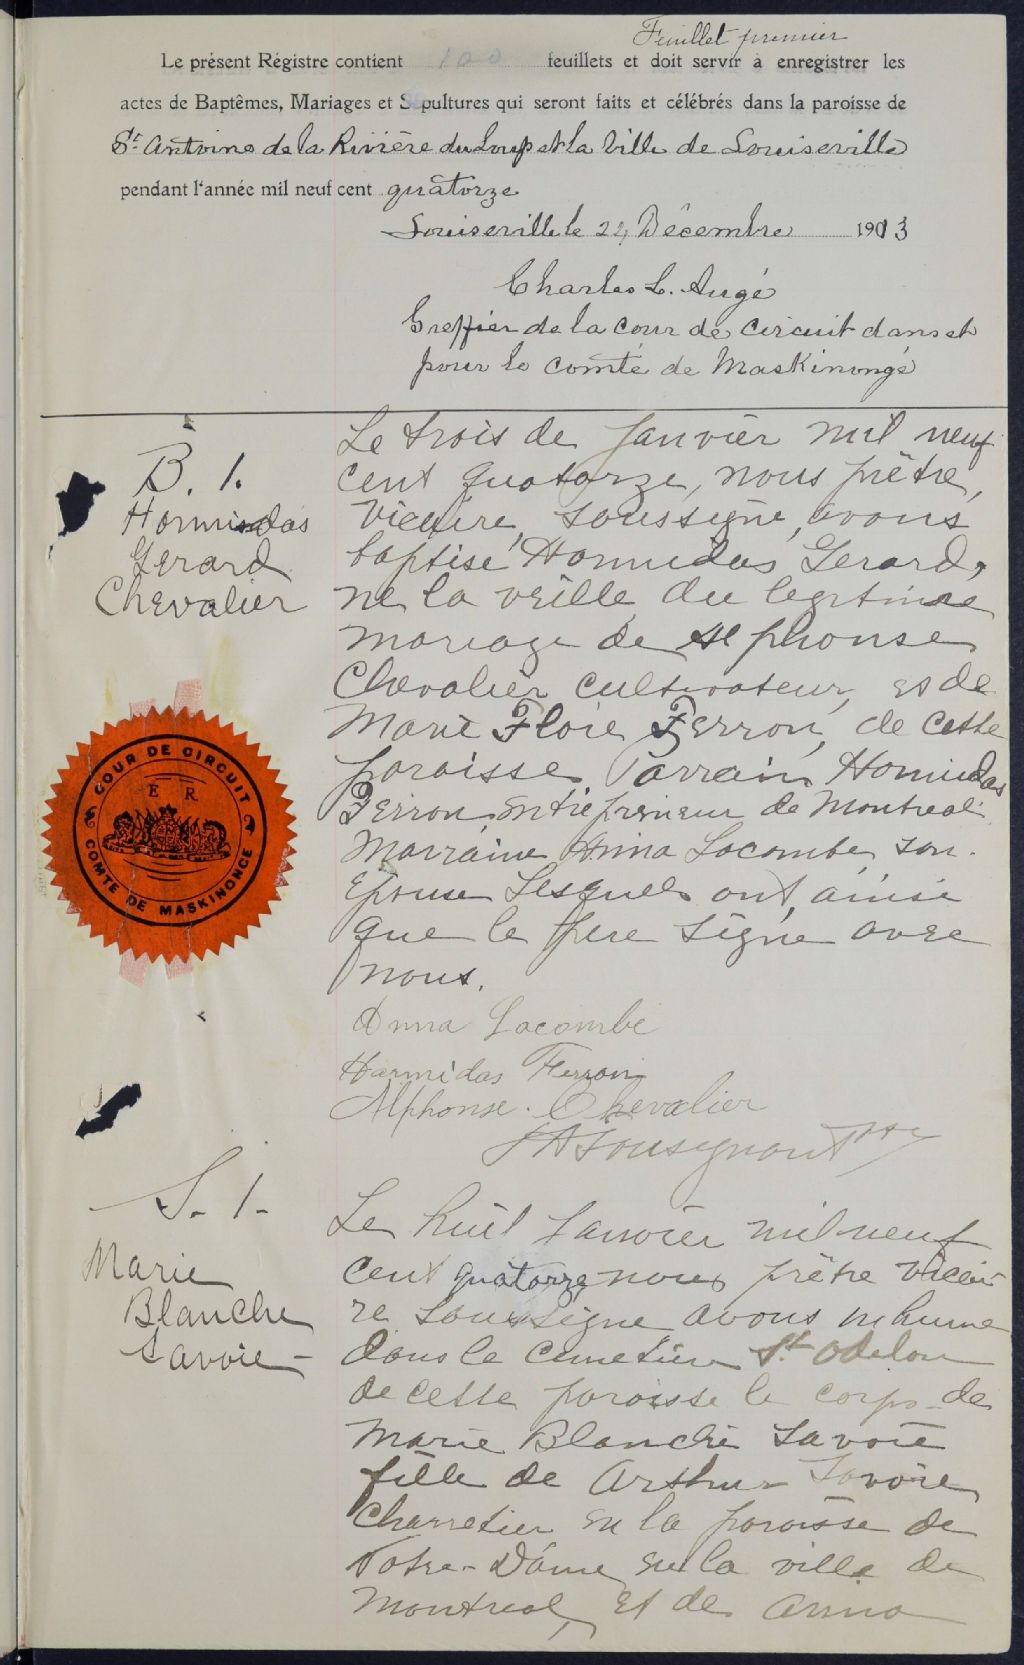 Feuillet premier
Le présent Régistre contient 100 feuillets et doit servir à enregistrer les
actes de Baptêmes, Mariages et Sépultures qui seront faits et célébrés dans la paroisse de
St. Antoine de la Rivière du Loup et la Ville de Louiseville
pendant l'année mil neuf cent quatorze
Louiseville le 24 Décembre 1913
Charles L. Augé
Greffier de la Cour de Circuit dans et
pour le comté de Maskinongé
B. 1.
Hormisdas
Gerard
Chevalier
Le trois de Janvier mil neuf
cent quatorze, nous prêtre,
Vicaire, soussigné, avons
baptisé Hormidas Gerard,
né la veille du legitime
mariage de Alphonse
Chevalier cultivateur, et de
Marie Floie Ferron, de cette
paroisse Parrain Hormidas
Ferron, entrepreneur de Montreal.
Marraine Anna Lacombe son
épouse Lesquels ont, ainsi
que le père signé avec
nous.
COUR DE CIRCUIT
E R
COMTÉ DE MASKINONGÉ
Anna Lacombe
Harmidas Ferron
Alphonse. Chevalier
JA Tousignant Ptre
S. 1-
Marie
Blanche
Savoie -
Le huit Janvier mil neuf
cent quatorze nous prêtre Vicai-
re soussigné avons inhumé
dans le cimetière St. Odilon
de cette paroisse le corps de
Marie Blanche Savoie
fille de Arthur Savoie
Charretier en la paroisse de
Notre-Dame, en la ville de
Montreal, et de Anna